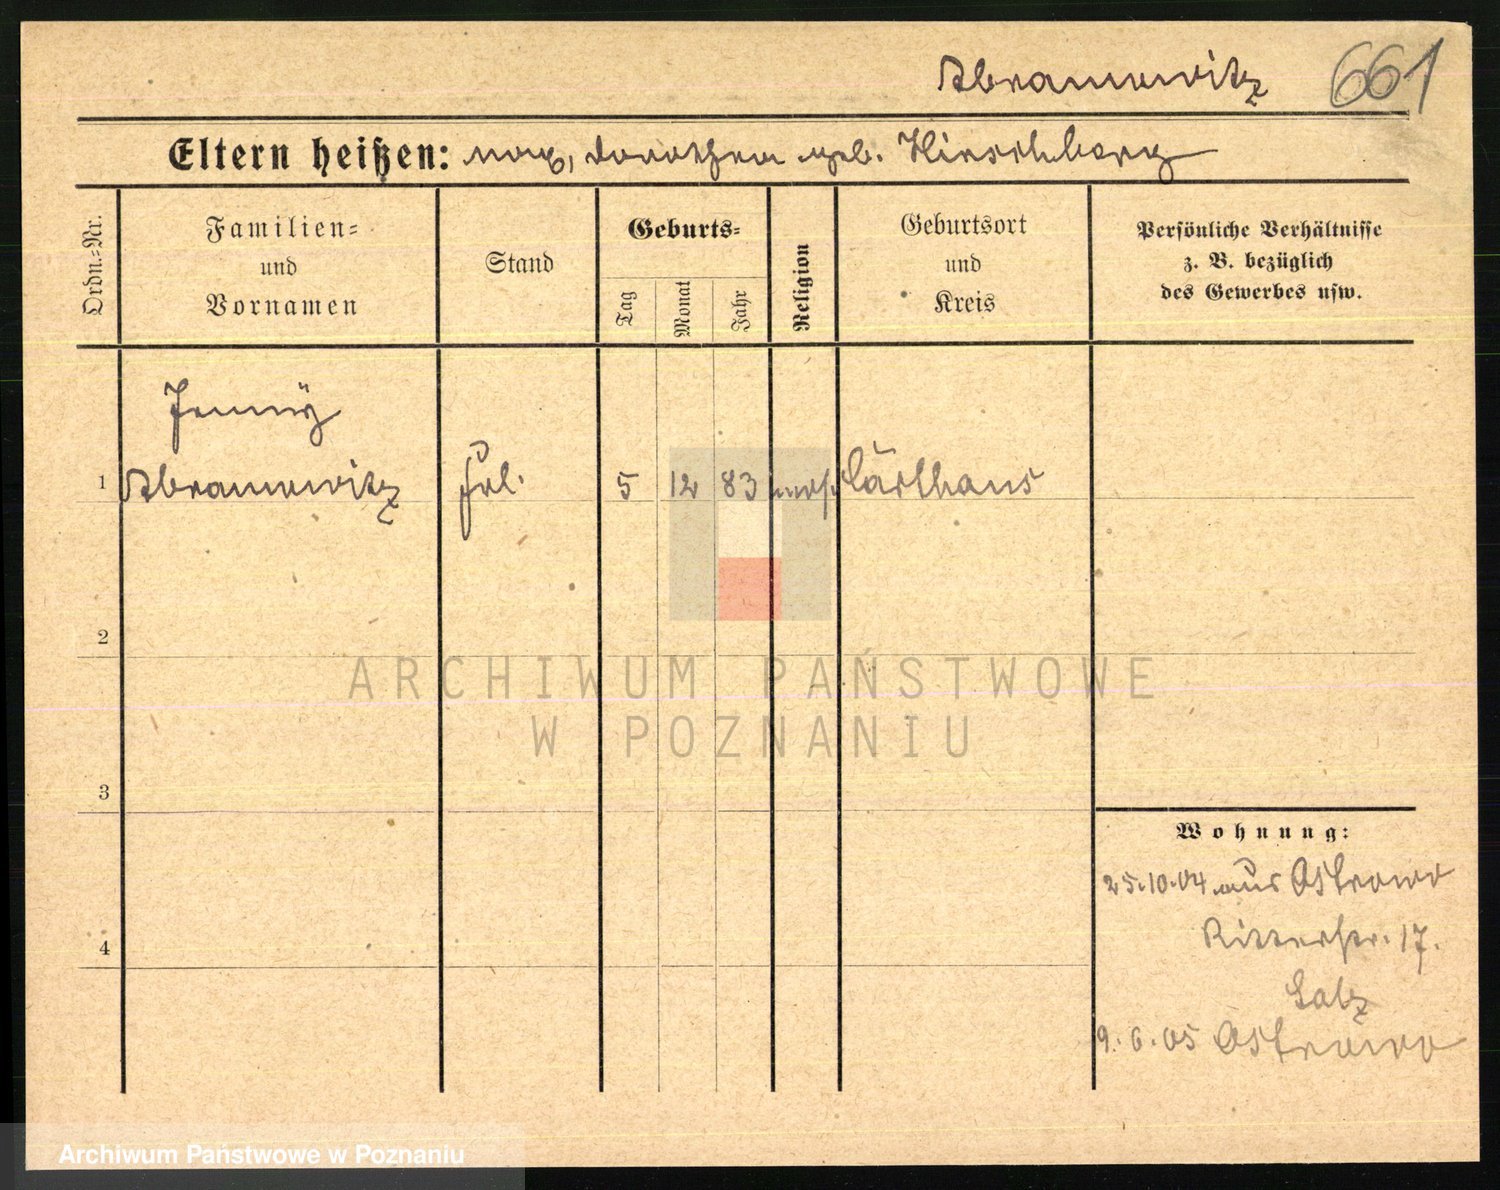 Abramowitz 661
Eltern heißen: Max, Dorothea geb. Hirschberg
Ordn.-Nr.
Familien-
und
Vornamen
Stand
Geburts-
Tag
Monat
Jahr
Religion
Geburtsort
und
Kreis
Persönliche Verhältnisse
z. B. bezüglich
des Gewerbes usw.
Jenny
1 Abramowitz Frl. 5 12 83 mos. Carthaus
2
3
4
Wohnung:
25.10.04 aus Ostrowo
Ritterstr. 17.
9.6.05 Ostrowo
ARCHIWUM PAŃSTWOWE
W POZNANIU
Archiwum Państwowe w Poznaniu